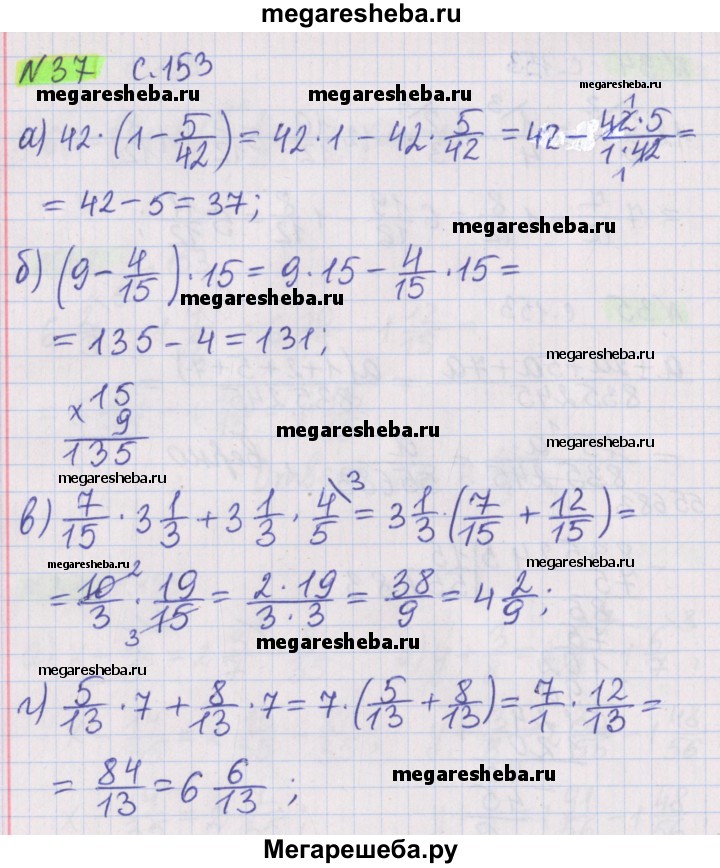 megaresheba.ru
№37 с.153
megaresheba.ru megaresheba.ru megaresheba.ru
а) 42·(1 − 5/42) = 42·1 − 42·5/42 = 42 − 42·5/1·42 =
1
1
= 42 − 5 = 37;
megaresheba.ru
б) (9 − 4/15)·15 = 9·15 − 4/15·15 =
megaresheba.ru
= 135 − 4 = 131;
megaresheba.ru
× 15
9
megaresheba.ru
135
megaresheba.ru megaresheba.ru
в) 7/15·3 1/3 + 3 1/3·4/5 \3 = 3 1/3·(7/15 + 12/15) =
megaresheba.ru megaresheba.ru
= 10/3 · 19/15 = 2·19/3·3 = 38/9 = 4 2/9;
2
3
megaresheba.ru
megaresheba.ru
г) 5/13·7 + 8/13·7 = 7·(5/13 + 8/13) = 7/1·12/13 =
= 84/13 = 6 6/13;
megaresheba.ru
Мегарешеба.ру